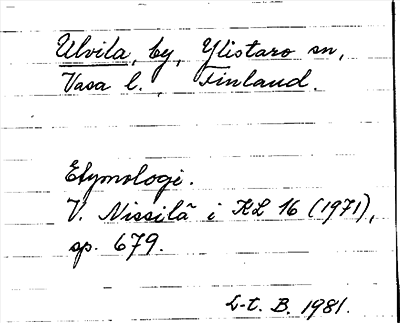 Ulvila, by, Ylistaro sn,
Vasa l., Finland.
Etymologi.
V. Nissilä i KL 16 (1971),
sp. 679.
L-t. B. 1981.